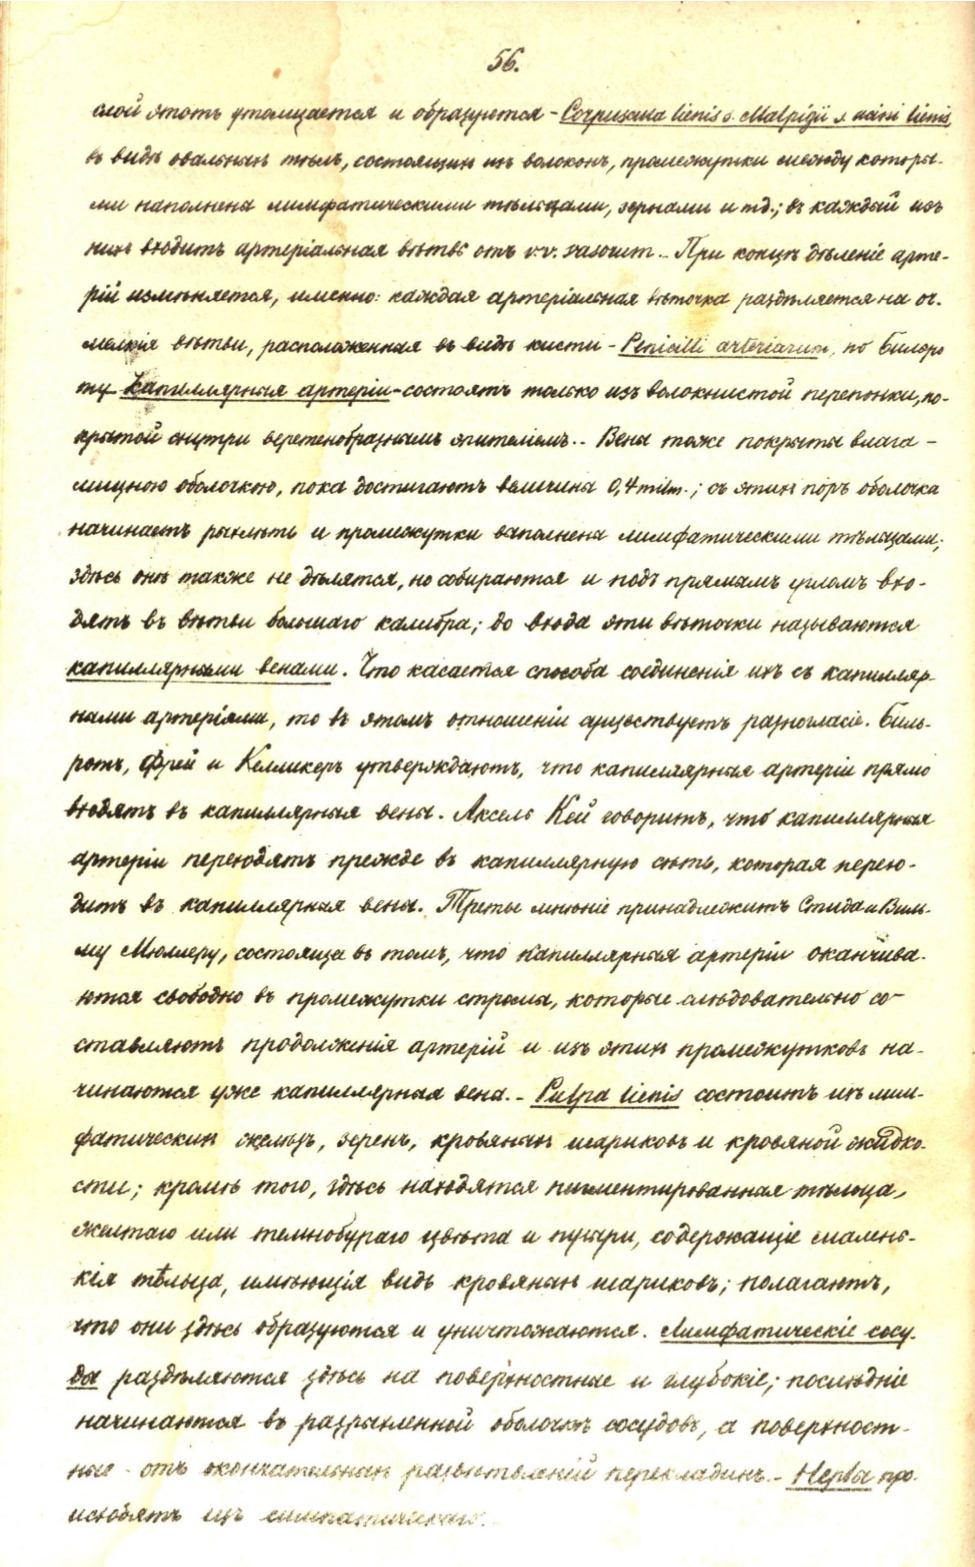 56.
слой этотъ утолщается и образуются - Corpuscula lienis s. Malpigii s.
въ видѣ овальныхъ тѣлъ, состоящихъ изъ волоконъ, промежутки между которы-
ми наполнены лимфатическими тѣльцами, зернами и т.д.; въ каждый изъ
нихъ входитъ артеріальная вѣтвь отъ v.v. vasorum. - При концѣ дѣленіе арте-
рій измѣняется, именно: каждая артеріальная вѣточка раздѣляется на оч.
мелкія вѣтви, расположенныя въ видѣ кисти - Penicilli arteriarum, по Бильро
ту капиллярныя артеріи - состоятъ только изъ волокнистой перепонки, по-
крытой снутри веретенобразнымъ эпителіемъ. - Вены тоже покрыты влага -
лищною оболочкою, пока достигаютъ величины 0,4 milm.; съ этихъ поръ оболочка
начинаетъ рыхлѣть и промежутки заполнены лимфатическими тѣльцами;
здѣсь онѣ также не дѣлятся, но собираются и подъ прямымъ угломъ вхо-
дятъ въ вѣтви большаго калибра; до входа эти вѣточки называются
капиллярными венами. Что касается способа соединенія ихъ съ капилляр-
ными артеріями, то въ этомъ отношеніи существуетъ разногласіе. Биль-
ротъ, Фрей и Келликеръ утверждаютъ, что капиллярныя артеріи прямо
входятъ въ капиллярныя вены. Аксель Кей говоритъ, что капиллярныя
артеріи переходятъ прежде въ капиллярную сѣть, которая перехо-
дитъ въ капиллярныя вены. Третье мнѣніе принадлежитъ Стида и Виль-
му Мюллеру, состояще въ томъ, что капиллярныя артеріи оканчива-
ются свободно въ промежутки стромы, которые слѣдовательно со-
ставляютъ продолженія артерій и изъ этихъ промежутковъ на-
чинаются уже капиллярныя вены. - Pulpa lienis состоитъ изъ лим-
фатическихъ железъ, зеренъ, кровяныхъ шариковъ и кровяной жидко-
сти; кромѣ того, здѣсь находятся пигментированныя тѣльца,
желтаго или темнобураго цвѣта и пузыри, содержащіе малень-
кія тѣльца, имѣющія видъ кровяныхъ шариковъ; полагаютъ,
что они здѣсь образуются и уничтожаются. Лимфатическіе сосу-
ды раздѣляются здѣсь на поверхностные и глубокіе; послѣдніе
начинаются въ разрыхленной оболочкѣ сосудовъ, а поверхност-
ные - отъ окончательныхъ развѣтвленій перекладинъ. - Нервы про-
исходятъ изъ симпатическаго.